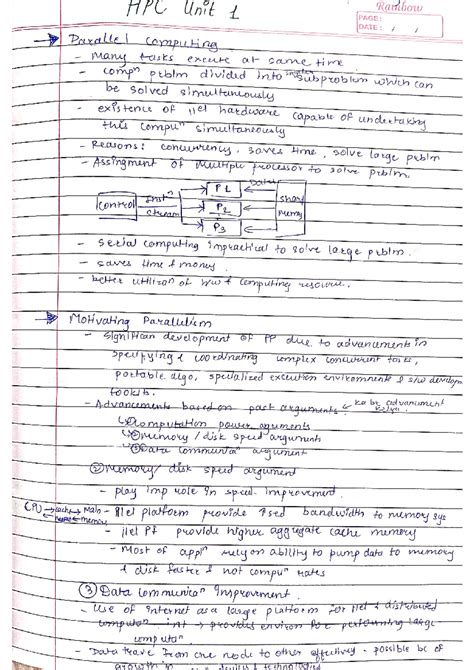 HPC Unit 1
Rainbow
PAGE:
DATE: / /
Parallel Computing
- Many tasks execute at same time
- compⁿ prblm divided into smaller subproblem which can
be solved simultaneously
- existence of llel hardware capable of undertaking
this compuⁿ simultaneously
- Reasons: concurrency, saves time, solve large prblm
- Assingment of Multiple processor to solve prblm.
Control
Instⁿ
stream
P1
P2
P3
Data
Share
memory
- serial computing impractical to solve large prblm.
- saves time & money.
- better utilizⁿ of H/W & computing resource.
Motivating Parallelism
- Significan development of PP due to advancements in
specifying & coordinating complex concurrent tasks,
portable algo, specialized excution environments & s/w developm
toolkits.
- Advancements based on past arguments
ka be advancement
① Computation power arguments
② Memory / disk speed argument
③ Data communicaⁿ argument
② Memory / disk speed argument
- play imp role in speed improvement.
CPU cache Main memory
- llel platform provide ↑sed bandwidth to memory sys
- llel Pf provide higher aggregate cache memory
- Most of applⁿ rely on ability to pump data to memory
& disk faster & not compuⁿ rates
③ Data Communicaⁿ Improvement.
- Use of internet as a large platform for llel & distributed
computaⁿ int → provides environ for performing large
computaⁿ
- Data trave from one node to other effectively - possible bc of
growth in